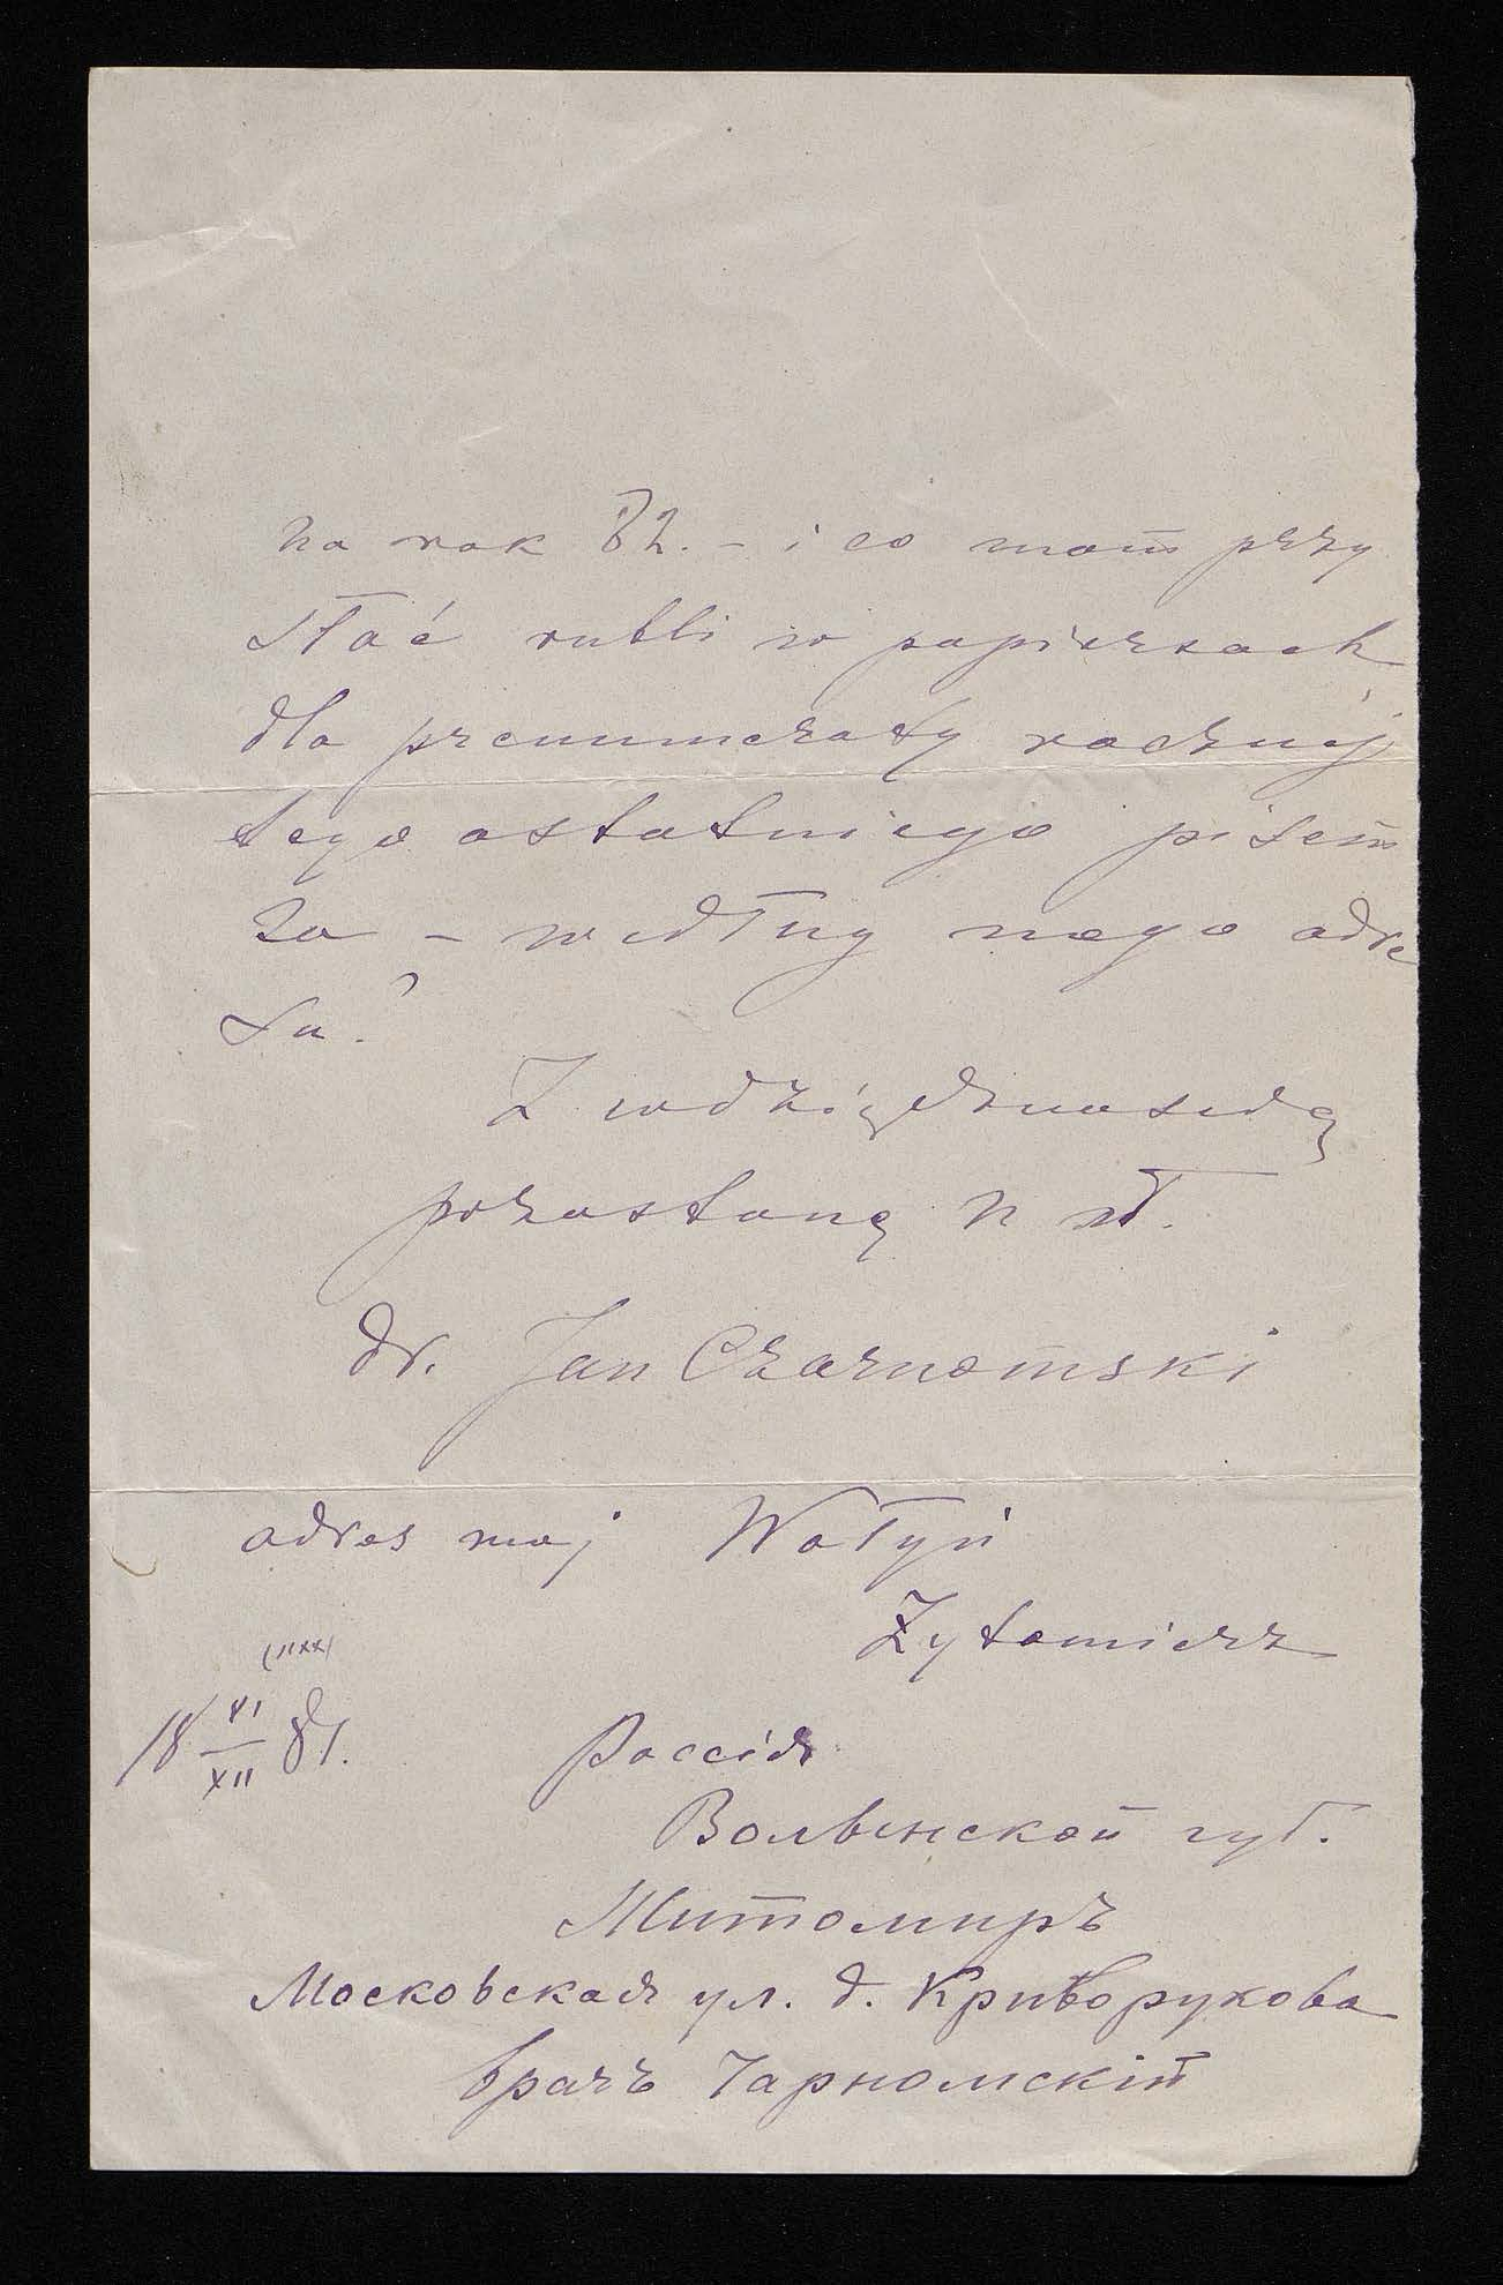 na rok 82. - i co mam przy
słać rubli w papierach
dla prenumeraty rocznej
tego ostatniego pisem
za - według mego adre
su?
Z wdzięcznością
pozostanę N sł.
Dr. Jan Czarnomski
adres moj Wołyń
Żytomierz
18 VI/XII 81.
Россія
Волынской губ.
Житомиръ
Московская ул. д. Криворукова
врачъ Чарномскій